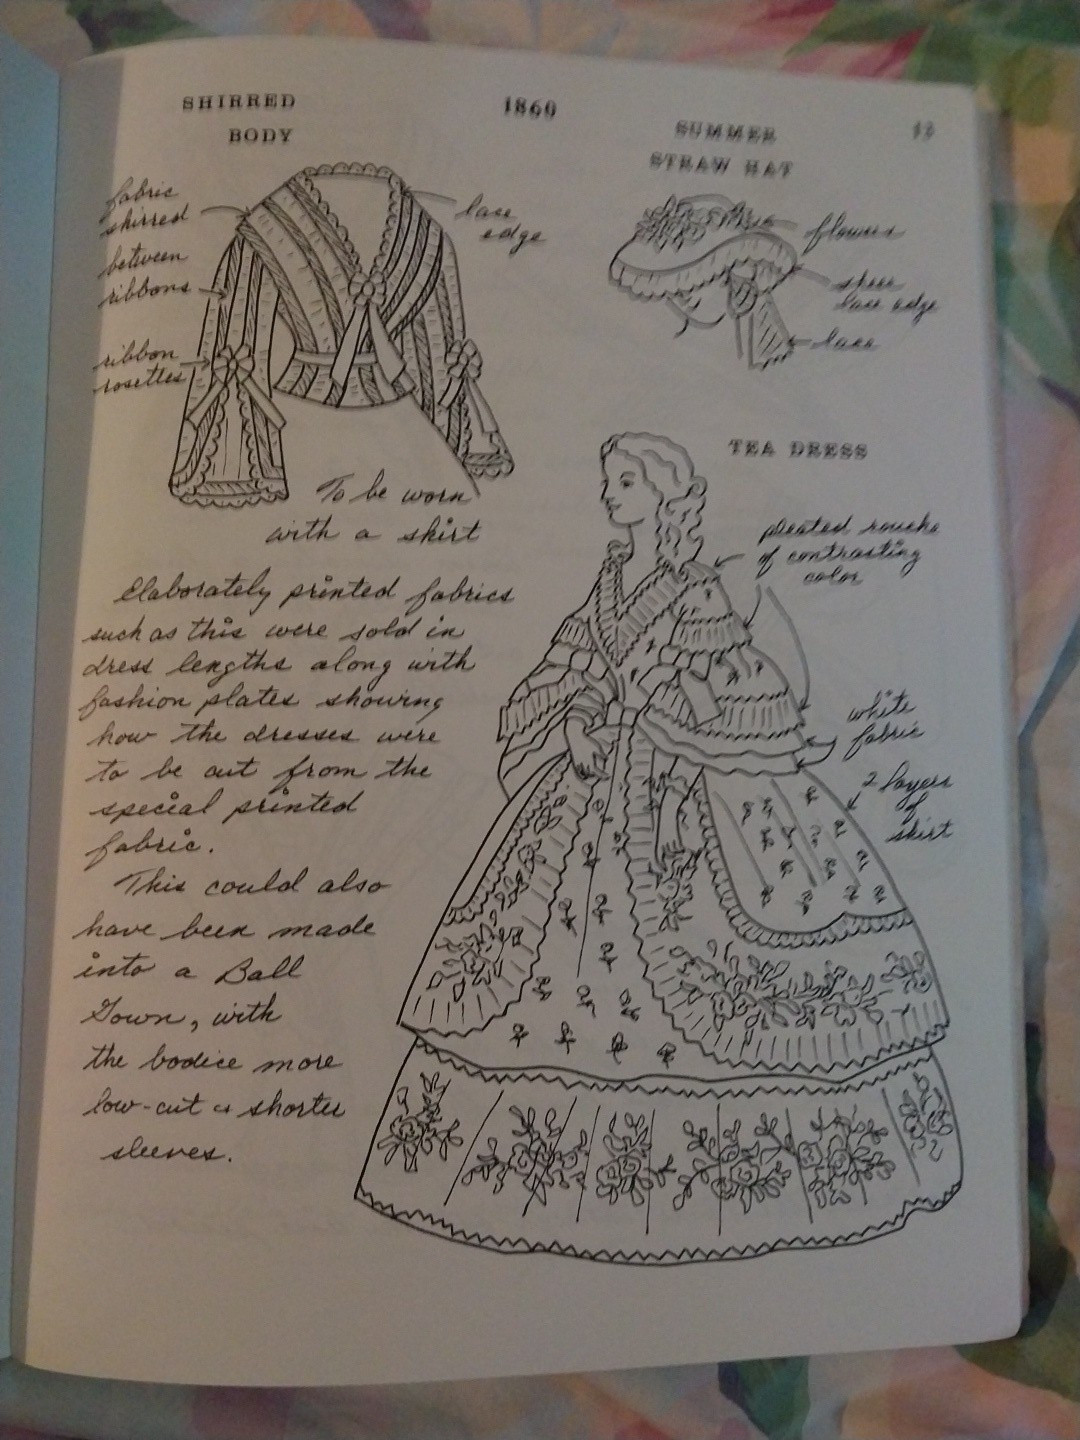 SHIRRED
BODY
1860
SUMMER
STRAW HAT
fabric
shirred
between
ribbons
ribbon
rosettes
lace
edge
flowers
sheer
lace edge
lace
To be worn
with a skirt
TEA DRESS
pleated rouche
of contrasting
color
white
fabric
2 layers
of
skirt
Elaborately printed fabrics
such as this were sold in
dress lengths along with
fashion plates showing
how the dresses were
to be cut from the
special printed
fabric.
This could also
have been made
into a Ball
Gown, with
the bodice more
low-cut & shorter
sleeves.